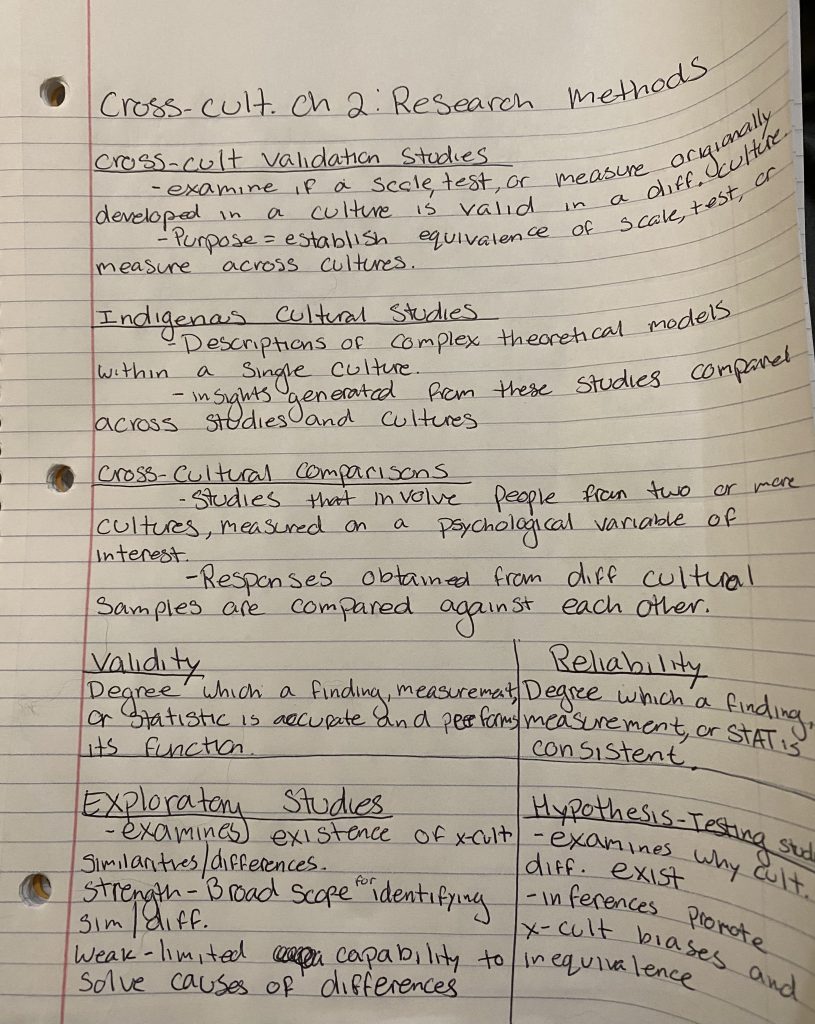 Cross-cult. ch 2: Research methods
Cross-cult validation Studies
-examine if a scale, test, or measure originally
developed in a culture is valid in a diff. culture.
-Purpose = establish equivalence of scale, test, or
measure across cultures.
Indigenas Cultural Studies
-Descriptions of complex theoretical models
within a single culture.
-insights generated from these studies compared
across studies and cultures
Cross-Cultural Comparisons
-Studies that involve people from two or more
cultures, measured on a psychological variable of
interest.
-Responses obtained from diff cultural
samples are compared against each other.
Validity
Degree which a finding, measurement,
or statistic is accurate and performs
its function.
Reliability
Degree which a finding,
measurement, or STAT is
consistent.
Exploratory Studies
-examines existence of x-cult
similarities/differences.
Strength-Broad scope for identifying
sim/diff.
Weak-limited capability to
solve causes of differences
Hypothesis-Testing
-examines why cult.
diff. exist
-inferences promote
x-cult biases and
inequivalence